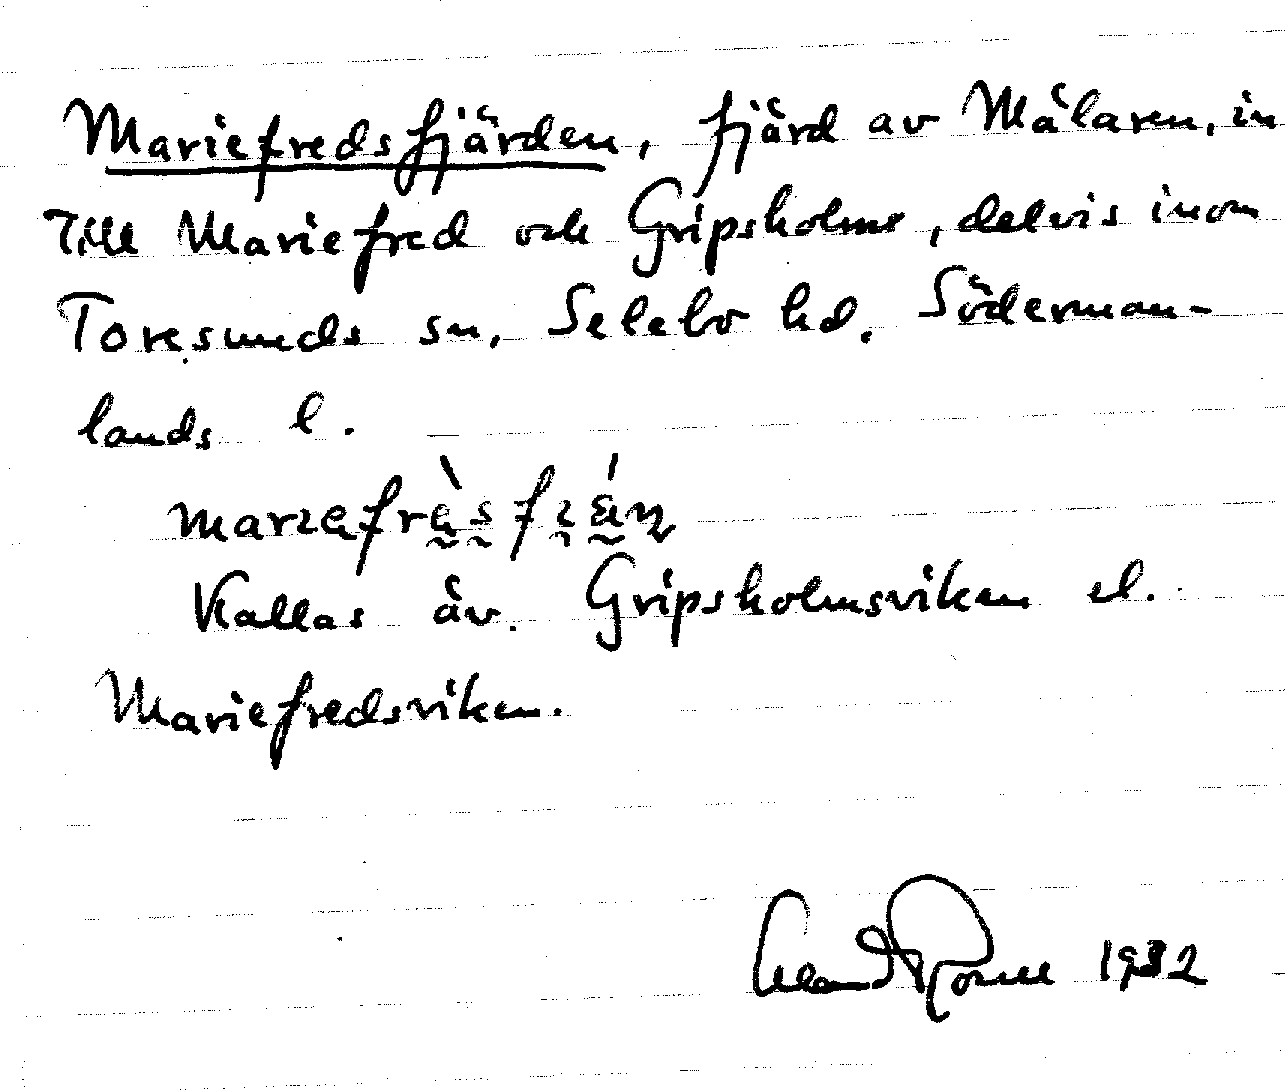 Mariefredsfjärden, fjärd av Mälaren, in
till Mariefred och Gripsholm, delvis inom
Toresunds sn, Selebo hd. Söderman-
lands l.
Kallas äv. Gripsholmsviken el.
Mariefredsviken.
1932